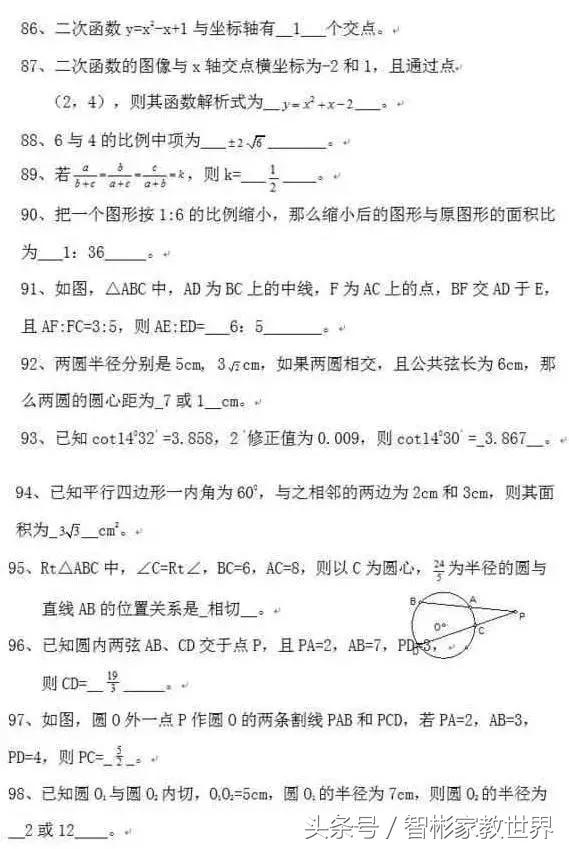 86、二次函数 y=x²-x+1 与坐标轴有__1___个交点。
87、二次函数的图像与 x 轴交点横坐标为-2 和 1，且通过点
（2，4），则其函数解析式为__y=x²+x-2___。
88、6 与 4 的比例中项为___±2√6_______。
89、若 a/(b+c)=b/(a+c)=c/(a+b)=k，则 k=___1/2____。
90、把一个图形按 1:6 的比例缩小，那么缩小后的图形与原图形的面积比
为___1：36_____。
91、如图，△ABC 中，AD 为 BC 上的中线，F 为 AC 上的点，BF 交 AD 于 E，
且 AF:FC=3:5，则 AE:ED=___6：5_______。
92、两圆半径分别是 5cm, 3√2cm，如果两圆相交，且公共弦长为 6cm，那
么两圆的圆心距为_7 或 1__cm。
93、已知 cot14⁰32′=3.858，2′修正值为 0.009，则 cot14⁰30′=_3.867__。
94、已知平行四边形一内角为 60⁰，与之相邻的两边为 2cm 和 3cm，则其面
积为_3√3__cm²。
95、Rt△ABC 中，∠C=Rt∠，BC=6，AC=8，则以 C 为圆心，24/5 为半径的圆与
直线 AB 的位置关系是_相切__。
B A P O C D
96、已知圆内两弦 AB、CD 交于点 P，且 PA=2，AB=7，PD=3，
则 CD=__19/3______。
97、如图，圆 O 外一点 P 作圆 O 的两条割线 PAB 和 PCD，若 PA=2，AB=3，
PD=4，则 PC=_5/2_。
98、已知圆 O₁与圆 O₂内切，O₁O₂=5cm，圆 O₁的半径为 7cm，则圆 O₂的半径为
__2 或 12____。
头条号／智彬家教世界